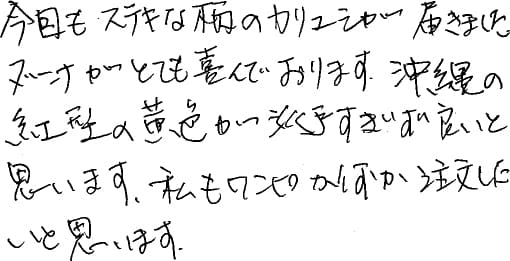 今回もステキな柄のカリユシが届きました
ダンナがとても喜んでおります。沖縄の
紅型の黄色が派手すぎず良いと
思います。私もワンピか何か注文した
いと思います。